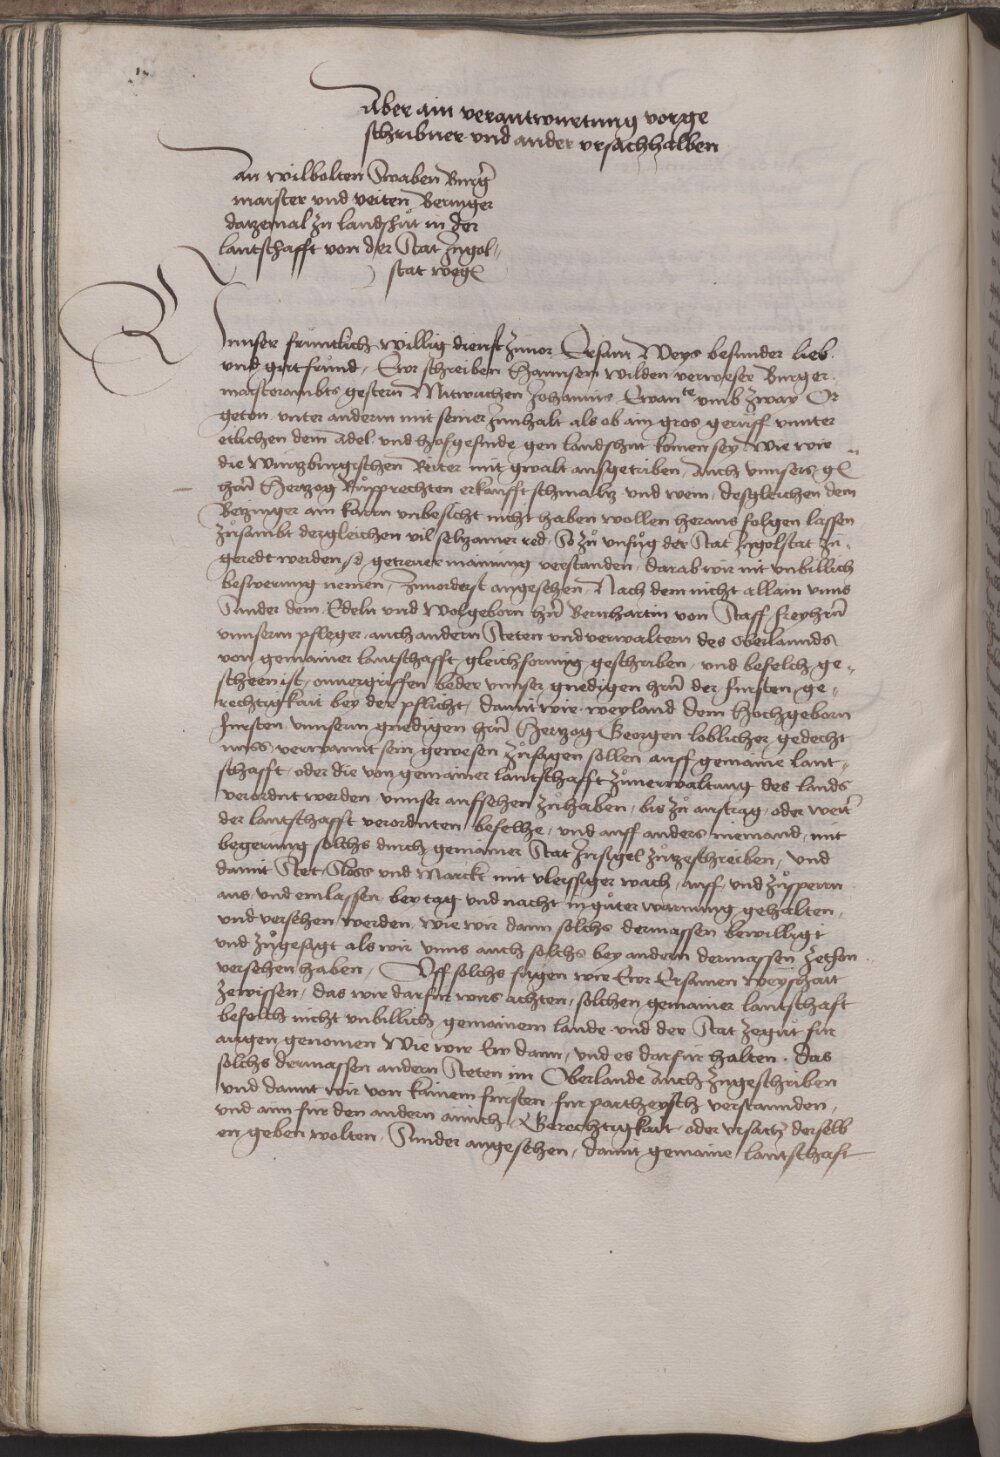 Aber ain verantwurtung vorge
schribner und ander ursachhalben
An wilbolten Swaben Burg
maister und veiten Beringer
datzemal zu landshut in der
lantschafft von der Stat Ingol
stat weg
Unnser fruntlich willig dienst zuuor Ersam Weys besunder lieb
und gut frund, Ewr schreiben Hannsen wilden verweser Burger
maisterambts gestern Mitwuchen Johannis umb zway Or
geton unter anderm mit seiner Innhalt als ob ain gros geruff unnter
etlichen dem Adel und hofgesinde gen landshut komen sey Wie wir
die Wurtzburgischen Reiter mit gwalt ausgetriben, Auch unnsers g
hern Hertzog Ruprechten erkaufft schmaltz und wein, desgleichen dem
Betzinger ain karrn unbesicht nicht haben wollen heraus folgen lassen
zusambt dergleichen vil seltzamer red, So zu unfug der Stat Ingolstat zu
geredt werden, getrewer mainung verstanden, darab wir nit unbillich
beswerung nemen, Zuuorderst angesehen, Nach dem nicht allain unns
Sunder dem Edeln und Wolgeborn hern Bernhartin von Stauff freyhern
unnserm pfleger auch andern Steten und verwaltern des Oberlannds
von gemainer lantschafft gleichformig geschriben, und befelch ge
scheen ist, onuergriffen beder unnser gnedigen hern der fursten ge
rechtigkait bey der pflicht, damit wir weyland dem Hochgeborn
fursten unnserm gnedigen hern Hertzog Georgen loblicher gedecht
nuss verwannt sein gewesen zusagen sollen auff gemaine lant
schafft, oder die von gemainer lantschafft zuuerwaltung des lands
verordnt werden unnser aufsehen zuhaben, bis zu austrag, oder weiter
der lantschafft verordnten befelhe, und auff anders niemand, mit
begerung solchs durch gemainer Stat Insigel zutzeschreiben, und
damit Stet, Sloss und Marckt mit vleissiger wach, auff und zusperrn
aus und einlassen bey tag und nacht in guter warnung gehalten,
und versehen werden, wie wir dann solchs dermassen bewilligt
und zugesagt als wir unns auch solchs bey andern dermassen zethon
versehen haben, Uff solchs fugen wir Ewr Ersamen weyshait
zewissen, das wir darfur unns achten, solchen gemainer lantschaft
befelch nicht unbillich gemainem lande und der Stat zegut fur
augen genomen Wie wir Ew dann, und es darfur halten, das
solchs dermassen andern Steten im Oberlande Auch zugeschriben
und damit wir von kainem fursten fur partheysch verstannden,
und aim fur den andern ainich Gerechtigkait oder ursach derselb
en geben wolten, Sunder angesehen, damit gemaine lantschaft